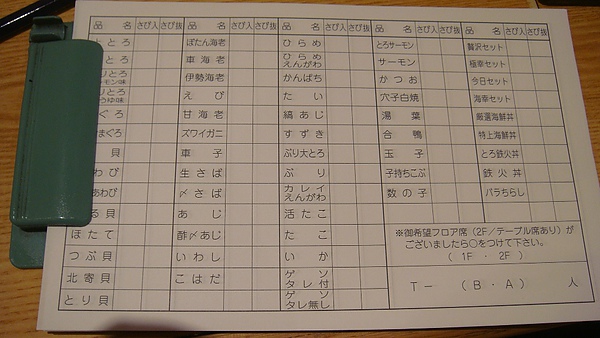 品 名 さび入 さび抜 品 名 さび入 さび抜 品 名 さび入 さび抜 品 名 さび入 さび抜 品 名 さび入 さび抜
とろ ぼたん海老 ひらめ とろサーモン 贅沢セット
とろ 車海老 ひらめ えんがわ サーモン 極幸セット
りとろ 伊勢海老 かんぱち かつお 今日セット
りとろ えび たい 穴子白焼 海幸セット
ぐろ 甘海老 縞あじ 湯葉 厳選海鮮丼
まぐろ ズワイガニ すずき 合鴨 特上海鮮丼
貝 車子 ぶり大とろ 玉子 とろ鉄火丼
わび 生さば ぶり 子持ちこぶ 鉄火丼
あわび 〆さば カレイ えんがわ 数の子 バラちらし
る貝 あじ 活たこ
ほたて 酢〆あじ たこ
つぶ貝 いわし いか
北寄貝 こはだ ゲソ タレ付
とり貝 ゲソ タレ無し
※御希望フロア席（2F／テーブル席あり）が
ございましたら○をつけて下さい。
（ 1F ・ 2F ）
T－ （B・A） 人